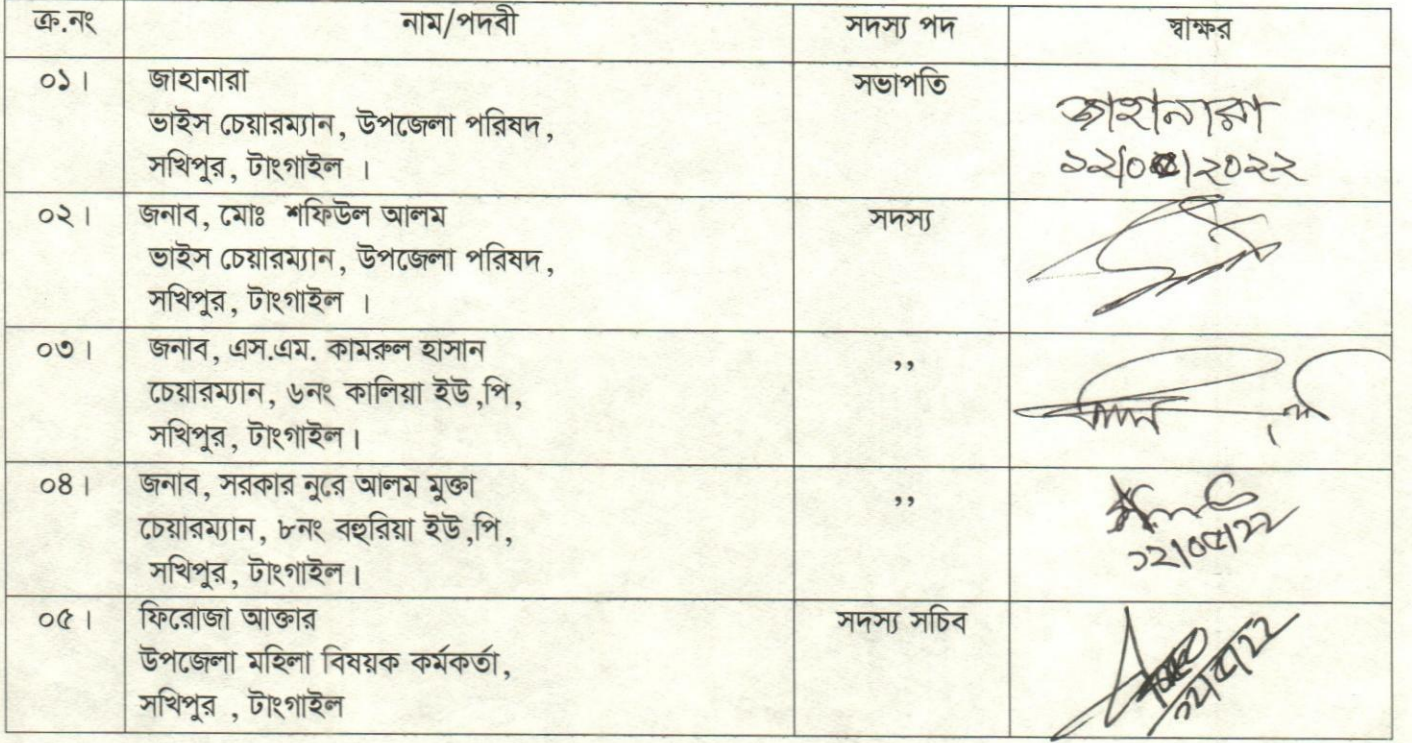 ক্র.নং নাম/পদবী সদস্য পদ স্বাক্ষর
০১। জাহানারা সভাপতি
ভাইস চেয়ারম্যান, উপজেলা পরিষদ,
সখিপুর, টাংগাইল ।
জাহানারা
১২/০৫/২০২২
০২। জনাব, মোঃ শফিউল আলম সদস্য
ভাইস চেয়ারম্যান, উপজেলা পরিষদ,
সখিপুর, টাংগাইল ।
০৩। জনাব, এস.এম. কামরুল হাসান ,,
চেয়ারম্যান, ৬নং কালিয়া ইউ,পি,
সখিপুর, টাংগাইল।
০৪। জনাব, সরকার নুরে আলম মুক্তা ,,
চেয়ারম্যান, ৮নং বহুরিয়া ইউ,পি,
সখিপুর, টাংগাইল।
১২/০৫/২২
০৫। ফিরোজা আক্তার সদস্য সচিব
উপজেলা মহিলা বিষয়ক কর্মকর্তা,
সখিপুর , টাংগাইল
১২/৫/২২